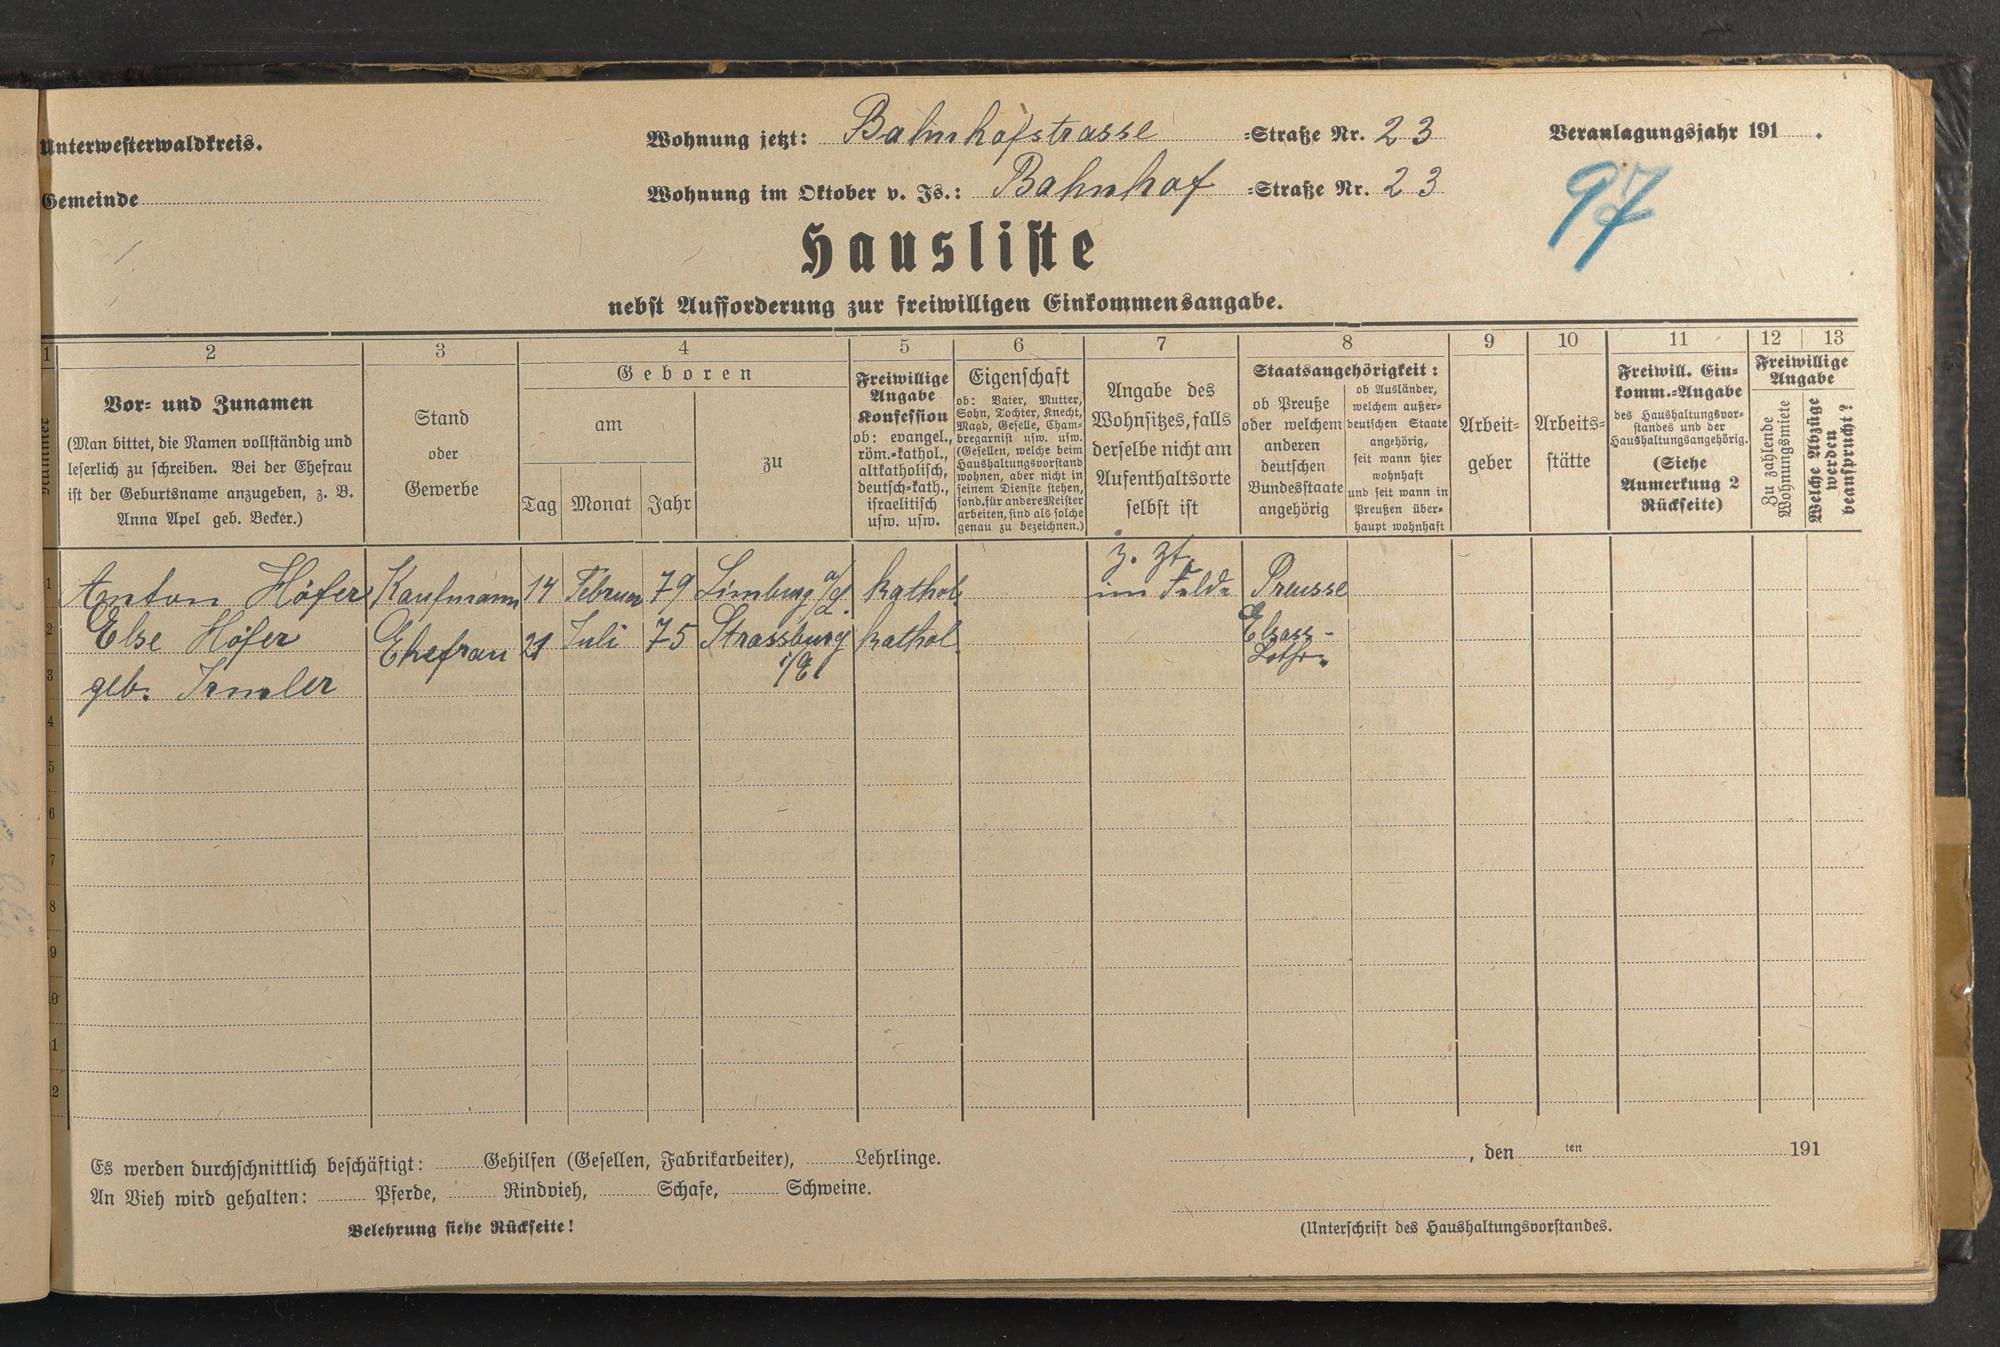 Unterwesterwaldkreis.
Wohnung jetzt: Bahnhofstrasse =Straße Nr. 23
Veranlagungsjahr 191 .
Gemeinde
Wohnung im Oktober v. Js.: Bahnhof =Straße Nr. 23
97
Hausliste
nebst Aufforderung zur freiwilligen Einkommensangabe.
1 2 3 4 5 6 7 8 9 10 11 12 13
Nummer
Vor= und Zunamen
(Man bittet, die Namen vollständig und
leserlich zu schreiben. Bei der Ehefrau
ist der Geburtsname anzugeben, z. B.
Anna Apel geb. Becker.)
Stand
oder
Gewerbe
Geboren
am
Tag Monat Jahr
zu
Freiwillige
Angabe
Konfession
ob: evangel.,
röm.=kathol.,
altkatholisch,
deutsch=kath.,
israelitisch
usw. usw.
Eigenschaft
ob: Vater, Mutter,
Sohn, Tochter, Knecht,
Magd, Geselle, Cham=
bregarnist usw. usw.
(Gesellen, welche beim
Haushaltungsvorstand
wohnen, aber nicht in
seinem Dienste stehen,
sond. für andere Meister
arbeiten, sind als solche
genau zu bezeichnen.)
Angabe des
Wohnsitzes, falls
derselbe nicht am
Aufenthaltsorte
selbst ist
Staatsangehörigkeit:
ob Preuße
oder welchem
anderen
deutschen
Bundesstaate
angehörig
ob Ausländer,
welchem außer=
deutschen Staate
angehörig,
seit wann hier
wohnhaft
und seit wann in
Preußen über=
haupt wohnhaft
Arbeit=
geber
Arbeits=
stätte
Freiwill. Ein=
komm.=Angabe
des Haushaltungsvor=
standes und der
Haushaltungsangehörig.
(Siehe
Anmerkung 2
Rückseite)
Freiwillige
Angabe
Zu zahlende
Wohnungsmiete
Welche Abzüge
werden
beansprucht?
1 Anton Höfer Kaufmann 14 Februar 79 Limburg a/L. kathol. z. Zt. im Felde Preusse
2 Else Höfer Ehefrau 21 Juli 75 Strassburg i/E. kathol. Elsass-
Lothr.
3 geb. Irmler
4
5
6
7
8
9
10
11
12
Es werden durchschnittlich beschäftigt: Gehilfen (Gesellen, Fabrikarbeiter), Lehrlinge.
An Vieh wird gehalten: Pferde, Rindvieh, Schafe, Schweine.
Belehrung siehe Rückseite!
, den ten 191
(Unterschrift des Haushaltungsvorstandes.